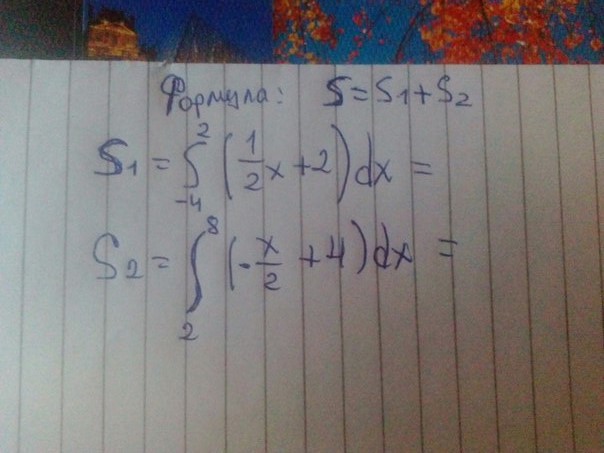 Формула: S = S₁ + S₂
S₁ = ∫₋₄² (1/2 x + 2) dx =
S₂ = ∫₂⁸ (- x/2 + 4) dx =